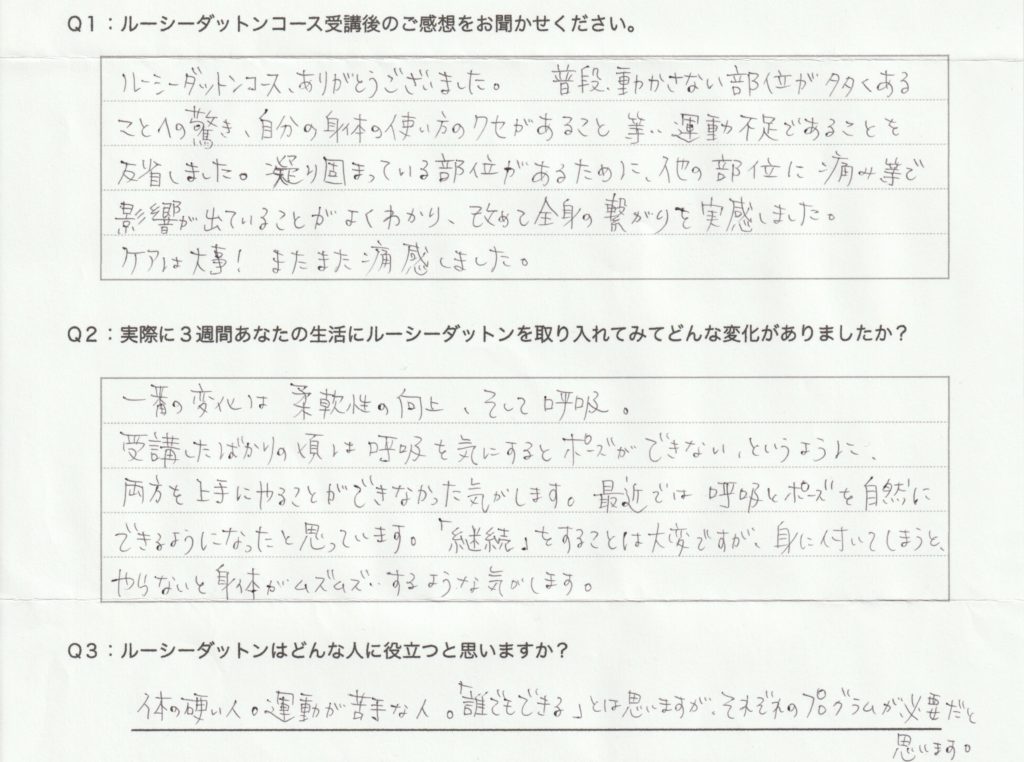 Q1：ルーシーダットンコース受講後のご感想をお聞かせください。
ルーシーダットンコース、ありがとうございました。 普段、動かさない部位が多くある
ことへの驚き、自分の身体の使い方のクセがあること 等… 運動不足であることを
反省しました。凝り固まっている部位があるために、他の部位に痛み等で
影響が出ていることがよくわかり、改めて全身の繋がりを実感しました。
ケアは大事！ またまた痛感しました。
Q2：実際に３週間あなたの生活にルーシーダットンを取り入れてみてどんな変化がありましたか？
一番の変化は 柔軟性の向上、そして呼吸。
受講したばかりの頃は呼吸を気にするとポーズができない、というように、
両方を上手にやることができなかった気がします。最近では呼吸とポーズを自然に
できるようになったと思っています。「継続」をすることは大変ですが、身に付いてしまうと、
やらないと身体がムズムズ…するような気がします。
Q3：ルーシーダットンはどんな人に役立つと思いますか？
体の硬い人。運動が苦手な人。「誰でもできる」とは思いますが、それぞれのプログラムが必要だと
思います。